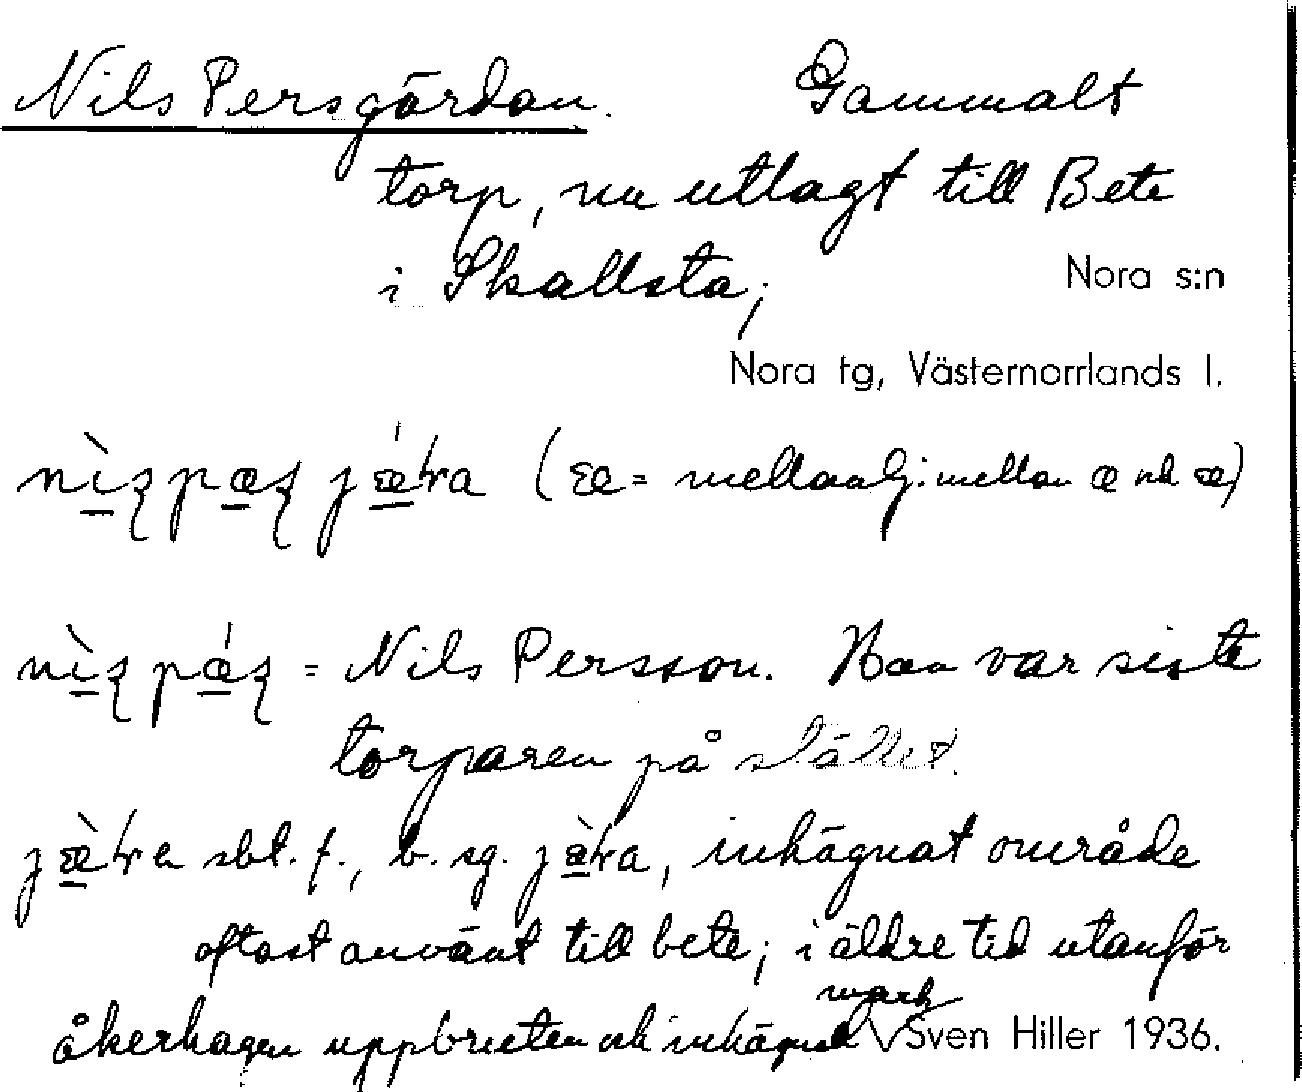 Nils Persgärdan. Gammalt
torp, nu utlagt till Bete
i Skallsta; Nora s:n
Nora tg, Västernorrlands l.
(æ = mellanlj. mellan æ och
= Nils Persson. Han var siste
torparen på stället.
sbt. f., b. sg. inhägnat område
oftast använt till bete; i äldre tid utanför
mark
åkerhagen uppbruten och inhägnad V Sven Hiller 1936.